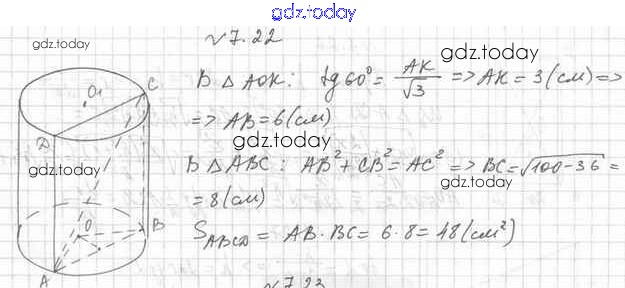 gdz.today
№7.22
gdz.today
gdz.today
В △ AOK: tg 60° = AK/√3 => AK = 3 (см) =>
=> AB = 6 (см)
gdz.today
В △ ABC: AB² + CB² = AC² => BC = √100-36 =
gdz.today
gdz.today
= 8 (см)
S ABCD = AB · BC = 6 · 8 = 48 (см²)
O₁
C
D
O
B
A
№7.23